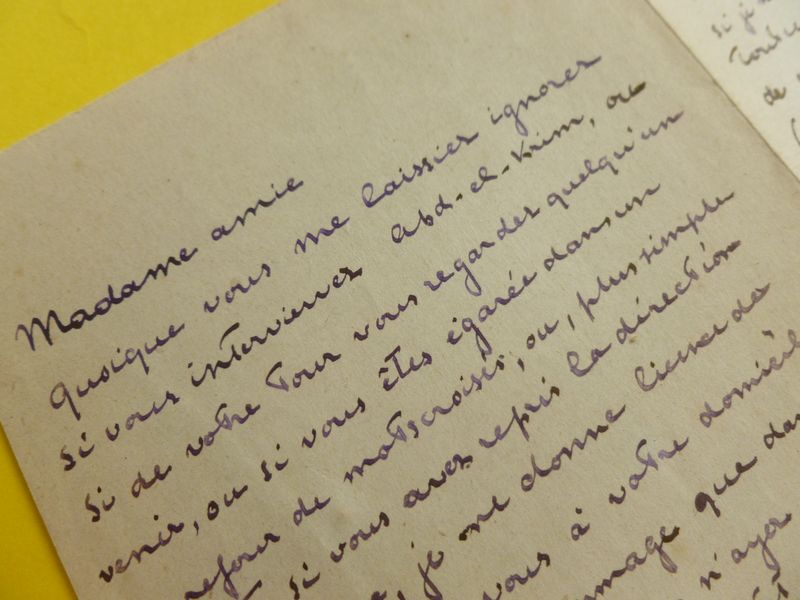 Madame amie
quoique vous me laissiez ignorer
si vous interviewez Abd-el-Krim, ou
si de votre tour vous regardez quelqu'un
venir, ou si vous êtes égarée dans un
refour de mots croisés, ou, plus simple
si vous avez repris la direction
, je me donne licence de
vous à votre domicil
mmage que dan
n'ayez
si je
toute
de